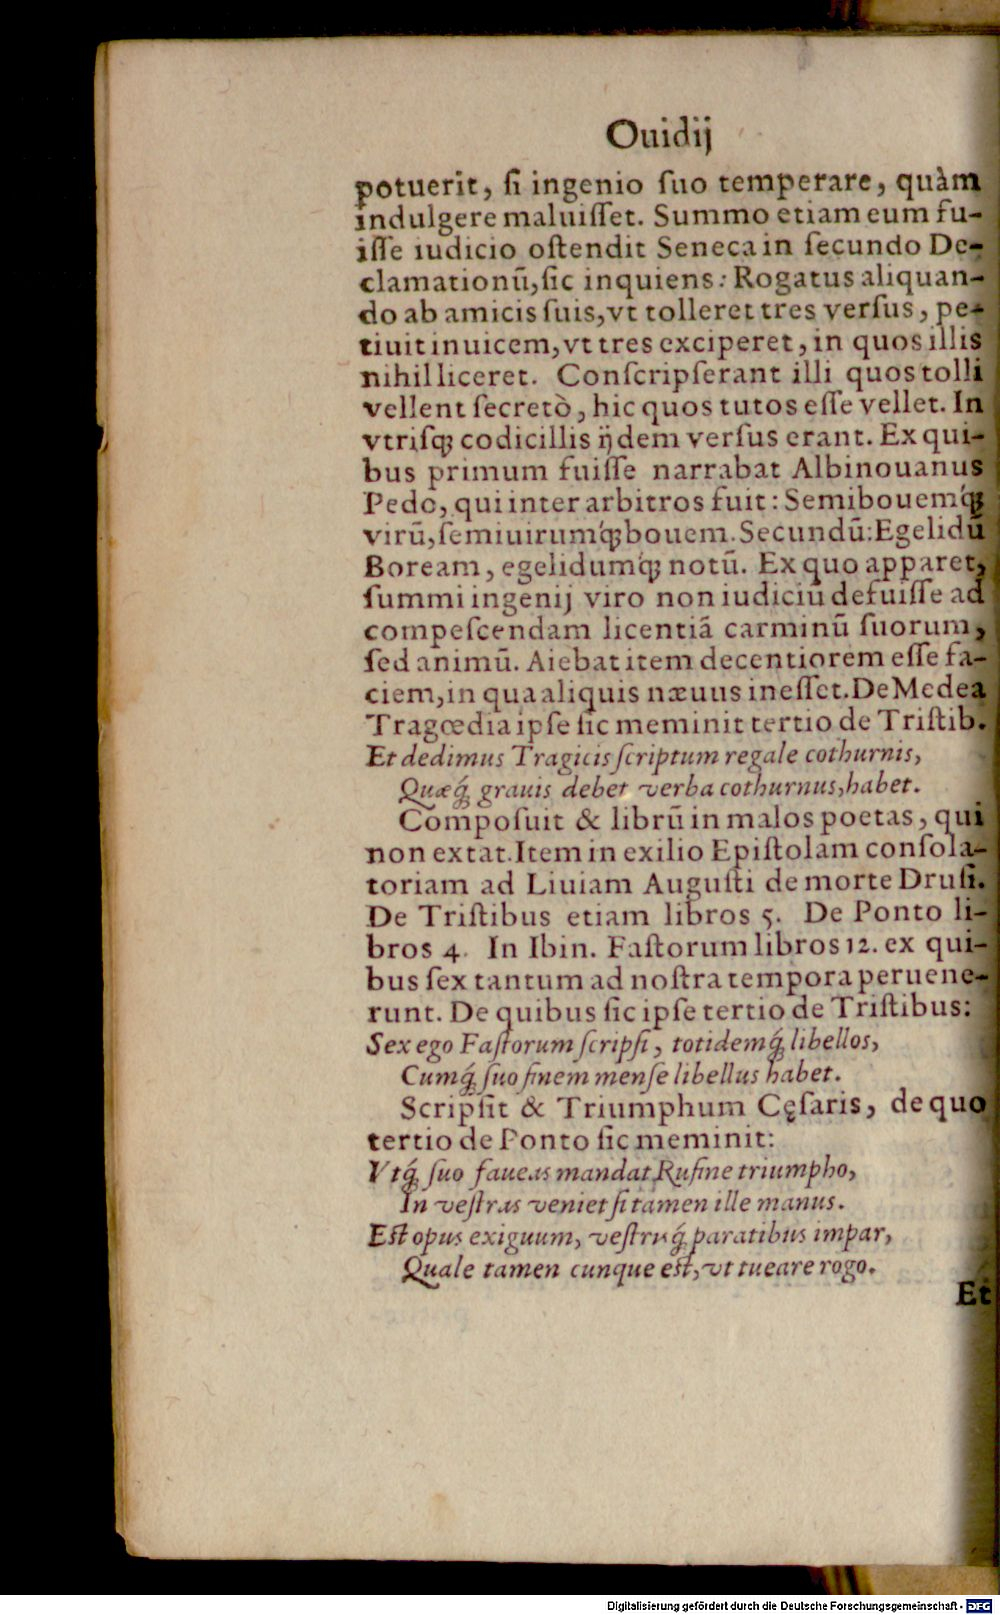 Ouidij
potuerit, ſi ingenio ſuo temperare, quàm
indulgere maluiſſet. Summo etiam eum fu-
iſſe iudicio oſtendit Seneca in ſecundo De-
clamationũ, ſic inquiens: Rogatus aliquan-
do ab amicis ſuis, vt tolleret tres verſus, pe-
tiuit inuicem, vt tres exciperet, in quos illis
nihil liceret. Conſcripſerant illi quos tolli
vellent ſecretò, hic quos tutos eſſe vellet. In
vtriſq; codicillis ijdem verſus erant. Ex qui-
bus primum fuiſſe narrabat Albinouanus
Pedo, qui inter arbitros fuit: Semibouemq́;
virũ, ſemiuirumq́; bouem. Secundũ: Egelidũ
Boream, egelidumq́; notũ. Ex quo apparet,
ſummi ingenij viro non iudiciũ defuiſſe ad
compeſcendam licentiã carminũ ſuorum,
ſed animũ. Aiebat item decentiorem eſſe fa-
ciem, in qua aliquis næuus ineſſet. De Medea
Tragœdia ipſe ſic meminit tertio de Triſtib.
Et dedimus Tragicis ſcriptum regale cothurnis,
Quæq́; grauis debet verba cothurnus, habet.
Compoſuit & librũ in malos poetas, qui
non extat. Item in exilio Epiſtolam conſola-
toriam ad Liuiam Auguſti de morte Druſi.
De Triſtibus etiam libros 5. De Ponto li-
bros 4. In Ibin. Faſtorum libros 12. ex qui-
bus ſex tantum ad noſtra tempora peruene-
runt. De quibus ſic ipſe tertio de Triſtibus:
Sex ego Faſtorum ſcripſi, totidemq́; libellos,
Cumq́; ſuo finem menſe libellus habet.
Scripſit & Triumphum Cęſaris, de quo
tertio de Ponto ſic meminit:
Vtq́; ſuo faueas mandat Rufine triumpho,
In veſtras veniet ſi tamen ille manus.
Eſt opus exiguum, veſtrisq́; paratibus impar,
Quale tamen cunque eſt, vt tueare rogo.
Et
Digitalisierung gefördert durch die Deutsche Forschungsgemeinschaft - DFG